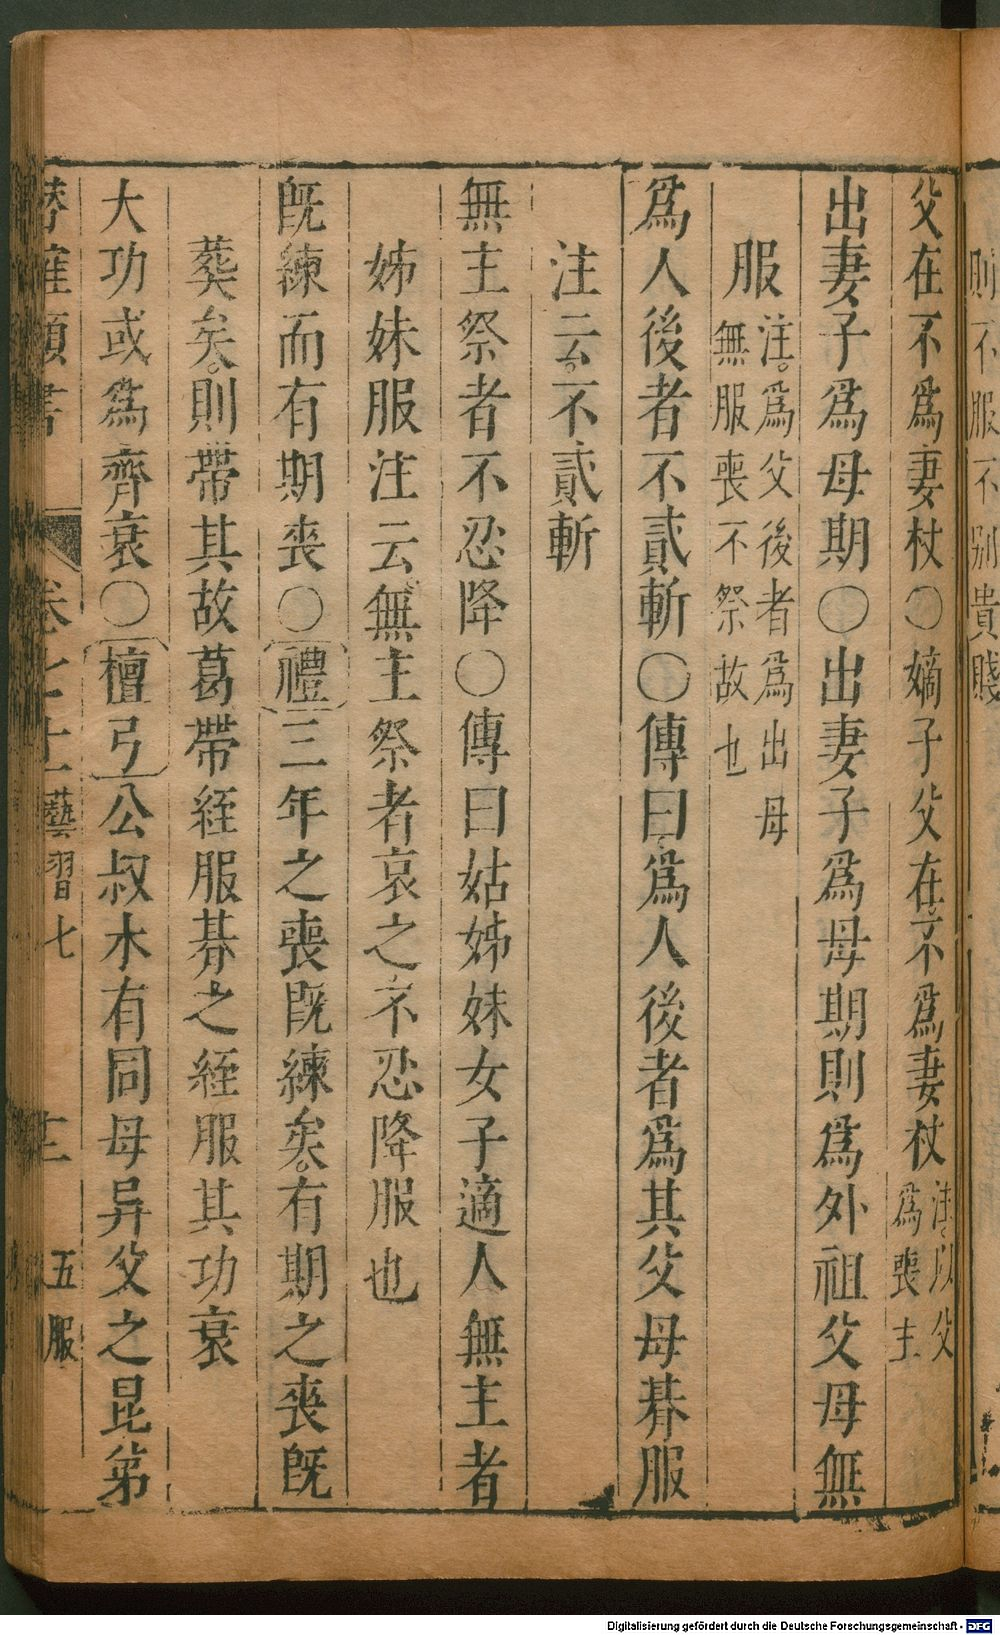 則不服不别貴賤
父在不爲妻杖〇嫡子父在不爲妻杖注。以父爲喪主
出妻子爲母期〇出妻子爲母期則爲外祖父母無
服注。爲父後者爲出母無服喪不祭故也
爲人後者不貳斬〇傳曰爲人後者爲其父母朞服
注云。不貳斬
無主祭者不忍降〇傳曰姑姊妹女子適人無主者
姊妹服注云無主祭者哀之不忍降服也
既練而有期喪〇禮三年之喪既練矣。有期之喪既
葬矣。則帶其故葛帶絰服朞之絰服其功衰
大功或爲齊衰〇檀弓公叔木有同母异父之昆弟
類書 卷七十 藝習七 三 五服
Digitalisierung gefördert durch die Deutsche Forschungsgemeinschaft - DFG